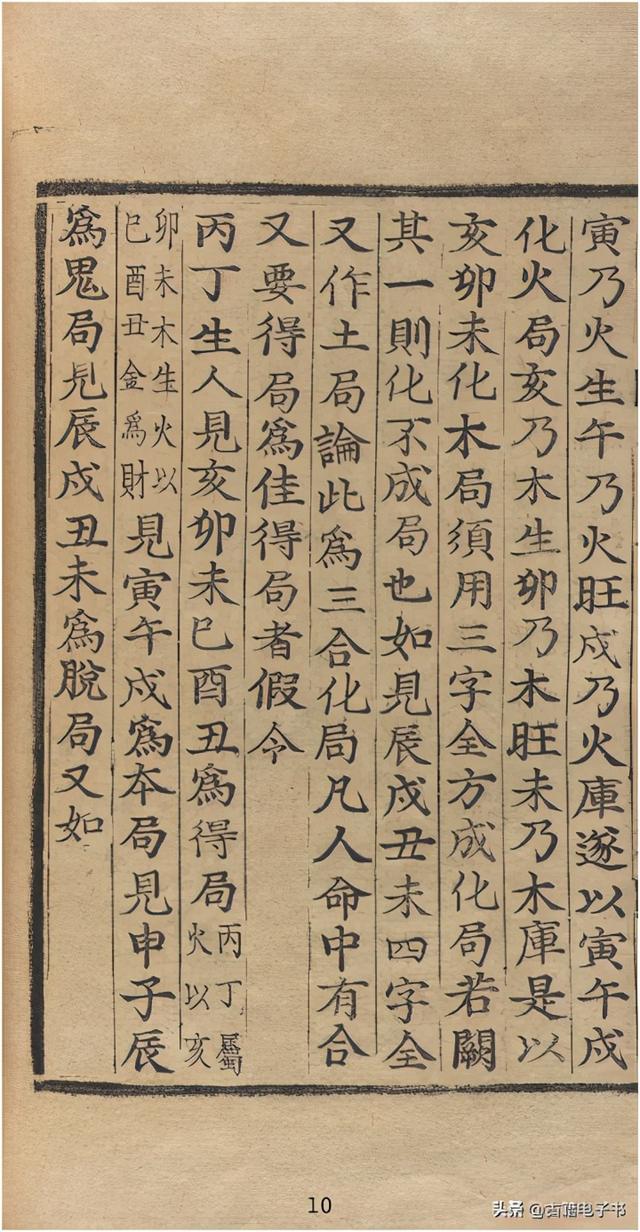 寅乃火生午乃火旺戍乃火庫遂以寅午戍
化火局亥乃木生卯乃木旺未乃木庫是以
亥卯未化木局須用三字全方成化局若闕
其一則化不成局也如見辰戍丑未四字全
又作土局論此爲三合化局凡人命中有合
又要得局爲佳得局者假令
丙丁生人見亥卯未巳酉丑爲得局丙丁屬
火以亥
卯未木生火以
巳酉丑金爲財見寅午戍爲本局見申子辰
爲鬼局見辰戍丑未爲脫局又如
10
头条@古籍电子书